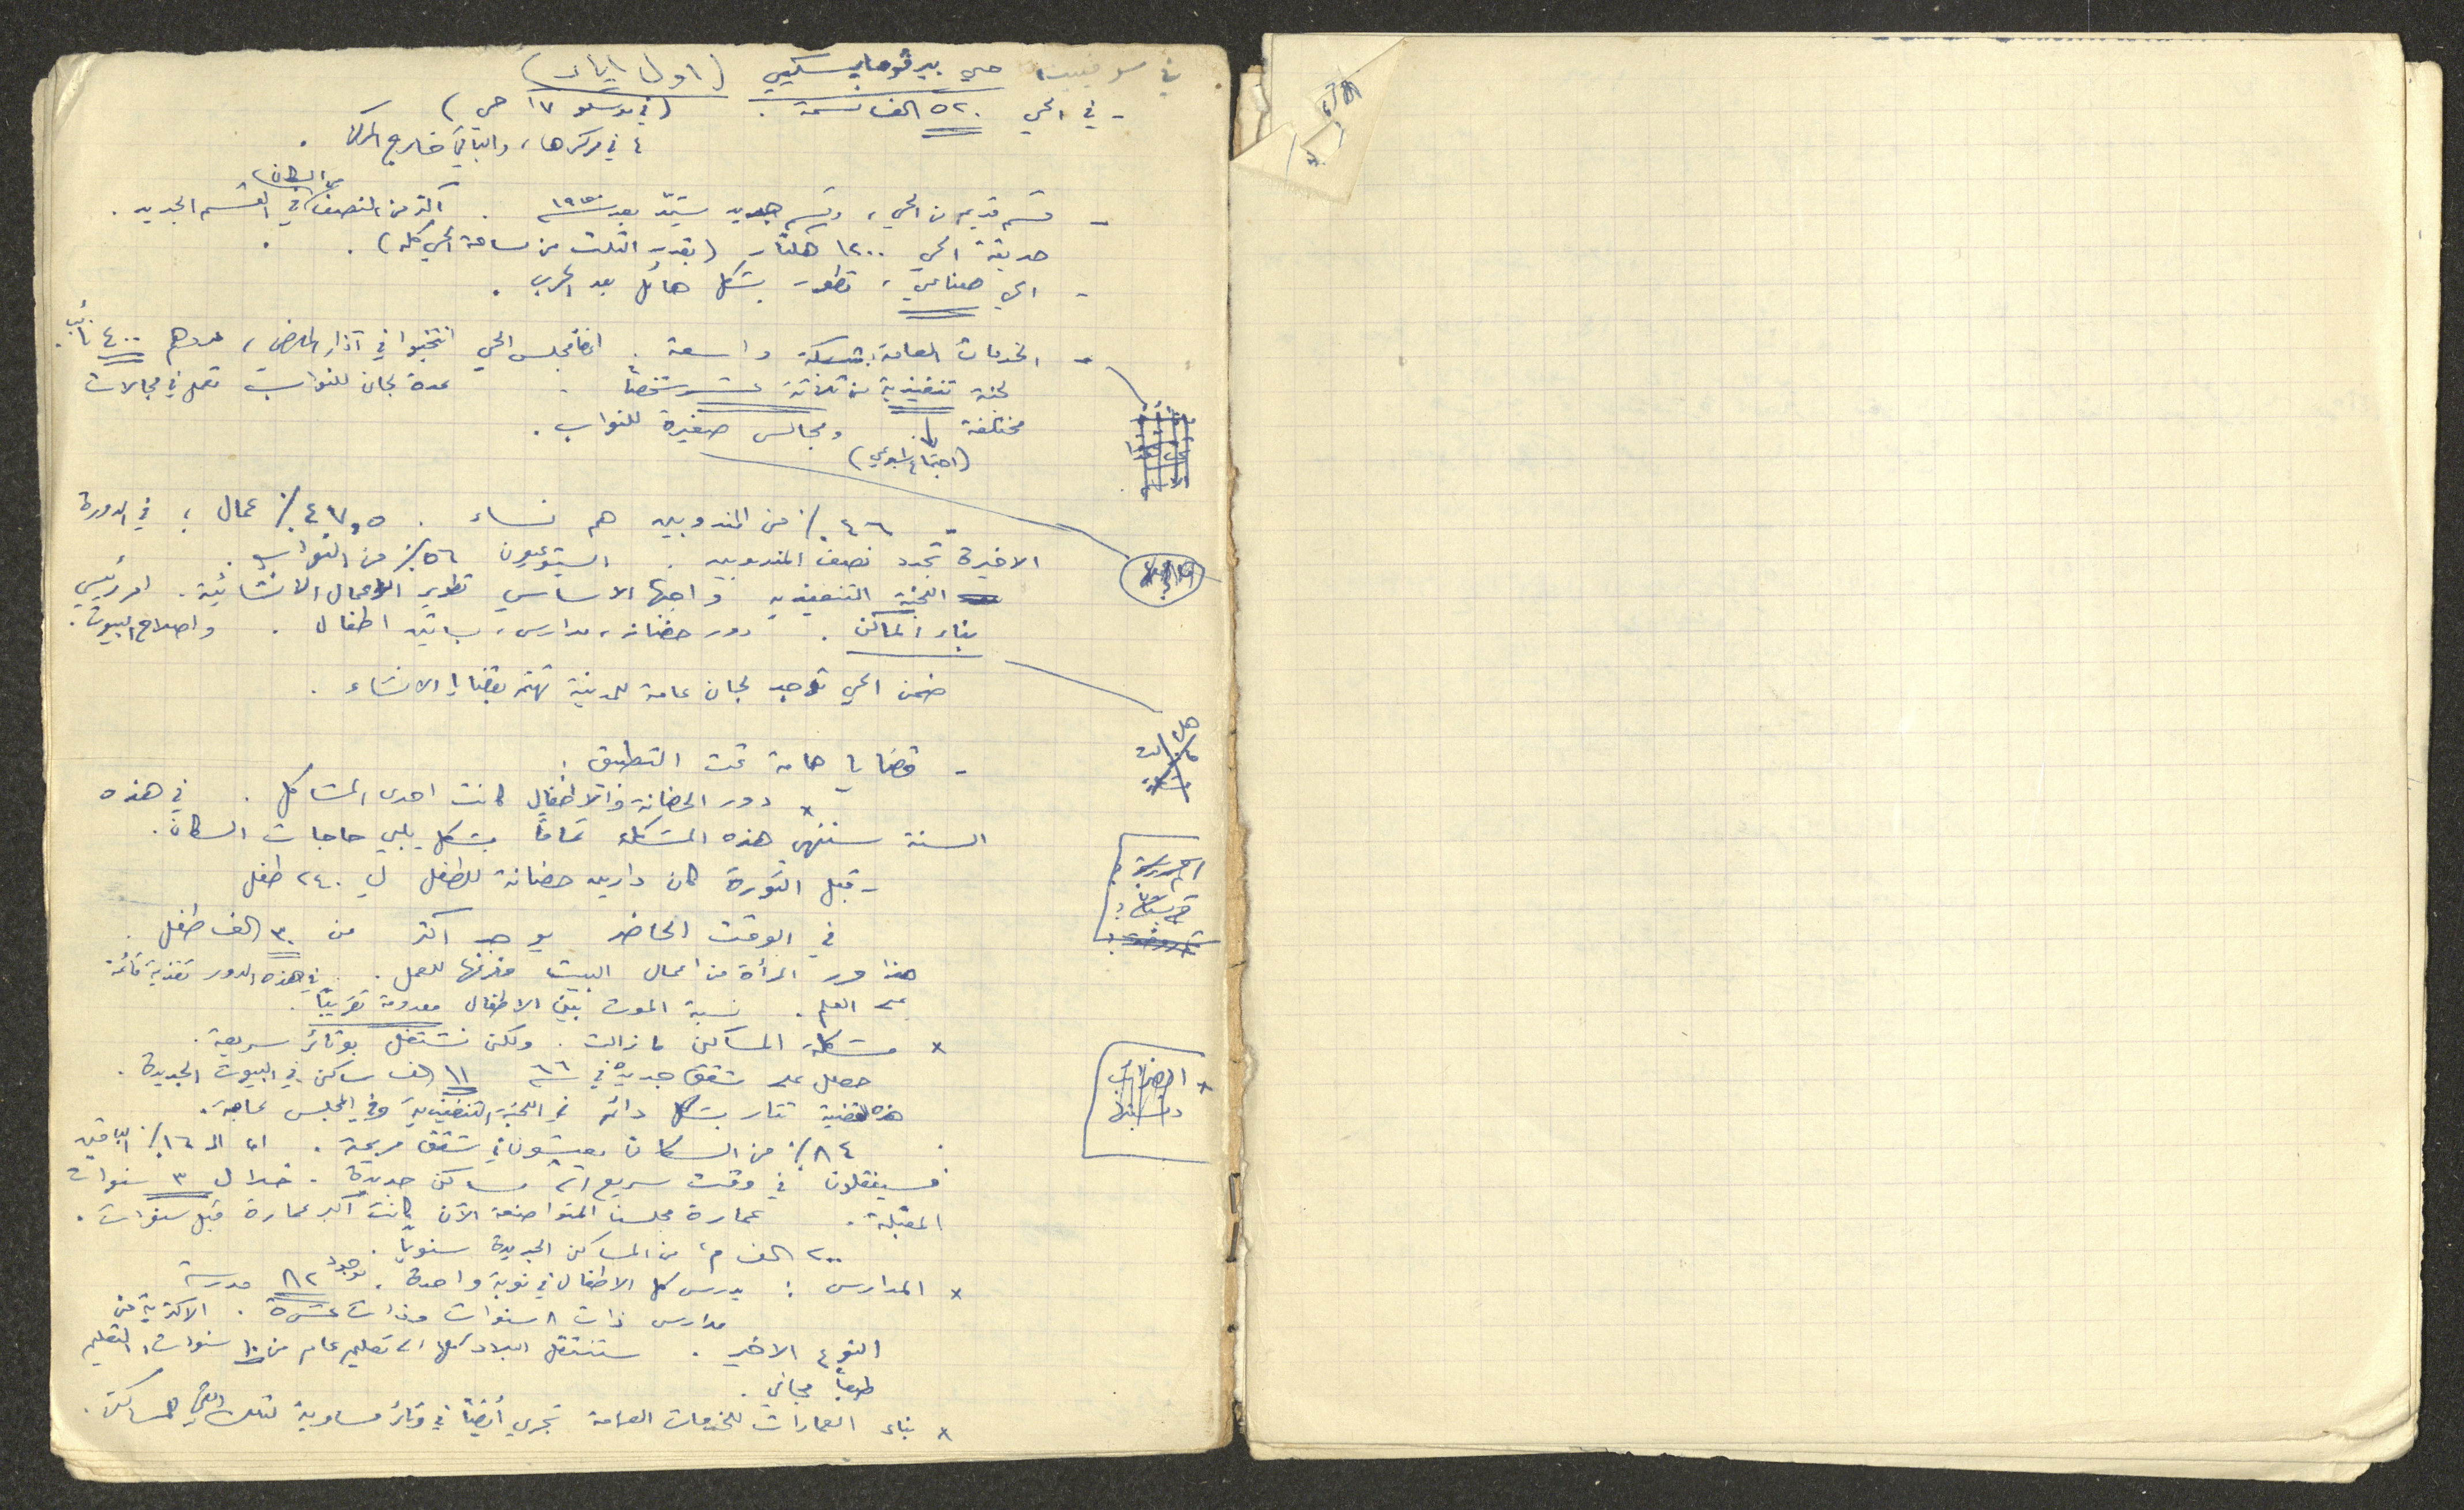 حي بيرڤومايسكيي (اول ايار)
- في الحي ٥٢٠ الف نسمة . (في موسكو ١٧ حي)
٤ في مركزها ، والباقي خارج المركز .
- قسم قديم من الحي ، وقسم جديد شيّد بعد سنة ١٩٥٠ . اكثر من النصف من السكان في القسم الجديد .
حديقة الحي ١٢٠٠ هكتار (بقدر الثلث من مساحة الحي كله) .
- الحي صناعي ، تطور بشكل هائل بعد الحرب .
- الخدمات العامة بشبكة واسعة . اعضا مجلس الحي انتخبوا في آذار الماضي ، عددهم ٤٠٠ نائب .
لجنة تنفيذية من ثلاثة عشر شخصاً . عدة لجان للنواب تعمل في مجالات
مختلفة ومجالس صغيرة للنواب .
(اجتماع اسبوعي)
- ٤٦٪ من المندوبين هم نساء . ٤٧,٥٪ عمال ؛ في الدورة
الاخيرة تجدد نصف المندوبين . الشيوعيون ٥٦٪ من النواب .
اللجنة التنفيذيه واجبها الاساسي تطوير الاعمال الانشائية . امر رئيسي
بناء المساكن . دور حضانة ، مدارس ، بساتين اطفال . واصلاح البيوت .
ضمن الحي توجد لجان عامة للمدينة تهتم بقضايا الانشاء .
- قضايا هامة تحت التطبيق .
× دور الحضانة والاطفال كانت احدى المشاكل . في هذه
السنة ستنتهي هذه المشكلة تماماً بشكل يلبي حاجات السكان .
- قبل الثورة كان دارين حضانة للطفل لـ ٢٤٠ طفل
في الوقت الحاضر يوجد اكثر من ٣٠ الف طفل .
هذا حرر المرأة من اعمال البيت وفرغها للعمل . في هذه الدور تغذية قائمة
على العلم . نسبة الموت بين الاطفال معدومة تقريباً .
× مشكلة المساكن ما زالت . ولكن نشتغل بوتائر سريعة .
حصل على شقق جديدة في سنة ٦٦ ١١ الف ساكن في البيوت الجديدة .
هذه القضية تثار بشكل دائم في اللجنة التنفيذية وفي المجلس عامة .
٨٤٪ من السكان يعيشون في شقق مريحة . اما الـ ١٦٪ الباقين
فسينقلون في وقت سريع الى مساكن جديدة . خلال ٣ سنوات
المقبلة . عمارة مجلسنا المتواضعة الآن كانت اكبر عمارة قبل سنوات .
٢٠٠ الف م٢ من المساكن الجديدة سنوياً .
× المدارس : يدرس كل الاطفال في نوبة واحدة . يوجد ٨٢ مدرسة
مدارس ذات ٨ سنوات وذات عشرة . الاكثرية من
النوع الاخير . ستنتقل البلاد كلها الى تعليم عام من ١٠ سنوات ، التعليم
طبعاً مجاني .
× بناء العمارات للخدمات العامة تجري أيضاً في وتائر مساوية لتلك التي للمساكن .
× الضرائب
ونسبتها